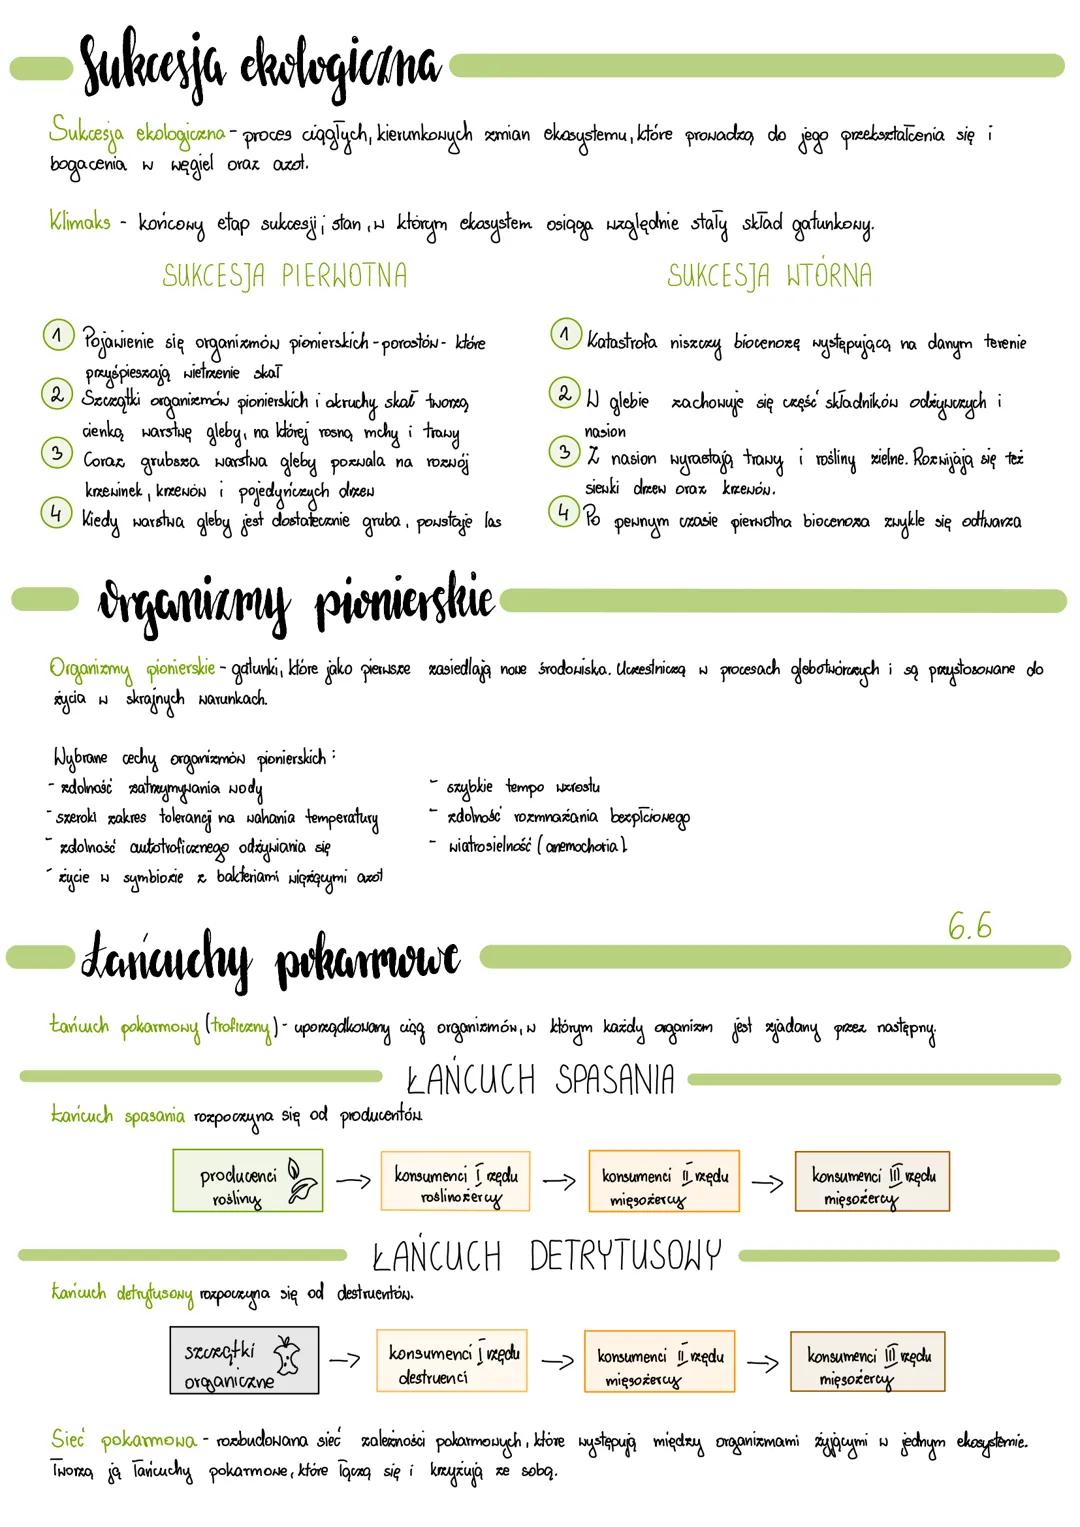 Sukcesja ekologiczna
Sukcesja ekologiczna - proces ciągłych, kierunkowych zmian ekosystemu, które prowadzą do jego przekształcenia się i
bogacenia w węgiel oraz azot.
Klimaks - końcowy etap sukcesji; stan, w którym ekosystem osiąga względnie stały skład gatunkowy.
SUKCESJA PIERWOTNA
1 Pojawienie się organizmów pionierskich - porostów - które
przyśpieszają wietrzenie skał
2 Szczątki organizmów pionierskich i okruchy skał tworzą
cienką warstwę gleby, na której rosną mchy i trawy
3 Coraz grubsza warstwa gleby pozwala na rozwój
krzewinek, krzewów i pojedyńczych drzew
4 Kiedy warstwa gleby jest dostatecznie gruba, powstaje las
SUKCESJA WTÓRNA
1 Katastrofa niszczy biocenozę występującą na danym terenie
2 W glebie zachowuje się część składników odżywczych i
nasion
3 Z nasion wyrastają trawy i rośliny zielne. Rozwijają się też
siewki drzew oraz krzewów.
4 Po pewnym czasie pierwotna biocenoza zwykle się odtwarza
Organizmy pionierskie
Organizmy pionierskie - gatunki, które jako pierwsze zasiedlają nowe środowiska. Uczestniczą w procesach glebotwórczych i są przystosowane do
życia w skrajnych warunkach.
Wybrane cechy organizmów pionierskich:
- zdolność zatrzymywania wody
- szeroki zakres tolerancji na wahania temperatury
- zdolność autotroficznego odżywiania się
- życie w symbiozie z bakteriami wiążącymi azot
- szybkie tempo wzrostu
- zdolność rozmnażania bezpłciowego
- wiatrosielność (anemochoria).
6.6
Łańcuchy pokarmowe
Łańcuch pokarmowy (troficzny) - uporządkowany ciąg organizmów, w którym każdy organizm jest zjadany przez następny.
ŁAŃCUCH SPASANIA
Łańcuch spasania rozpoczyna się od producentów.
producenci
rośliny
→ konsumenci I rzędu
roślinożercy
→ konsumenci II rzędu
mięsożercy
→ konsumenci III rzędu
mięsożercy
ŁAŃCUCH DETRYTUSOWY
Łańcuch detrytusowy rozpoczyna się od destruentów.
szczątki
organiczne
→ konsumenci I rzędu
destruenci
→ konsumenci II rzędu
mięsożercy
→ konsumenci III rzędu
mięsożercy
Sieć pokarmowa - rozbudowana sieć zależności pokarmowych, które występują między organizmami żyjącymi w jednym ekosystemie.
Tworzą ją łańcuchy pokarmowe, które łączą się i krzyżują ze sobą.